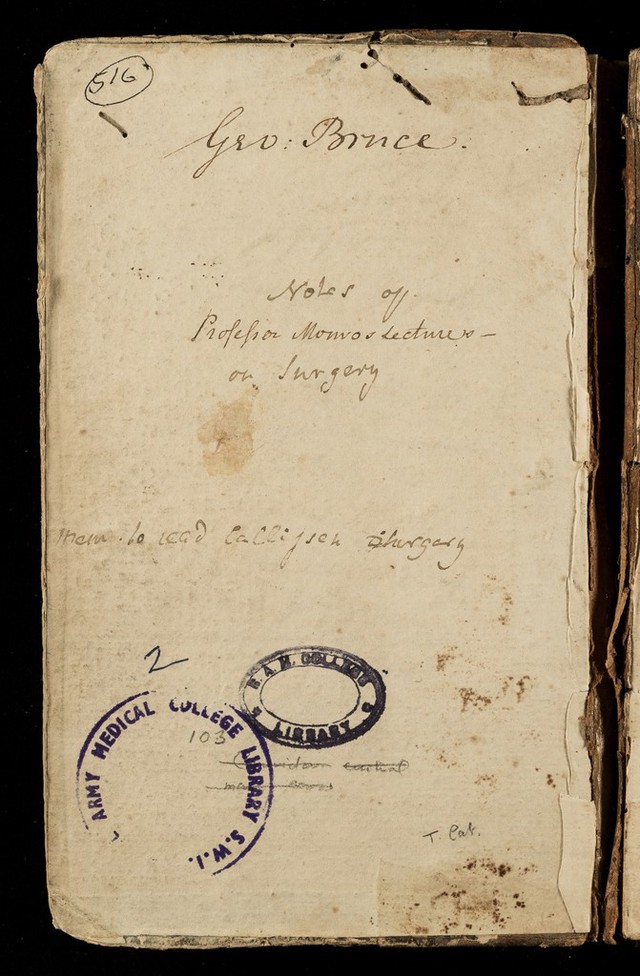 516
Geo: Bruce.
Notes of
Professor Monros Lectures —
on Surgery
Mem. to read Callisen Surgery
2
R. A. M. COLLEGE
LIBRARY
ARMY MEDICAL COLLEGE LIBRARY S.W.1.
103
T. Cat.